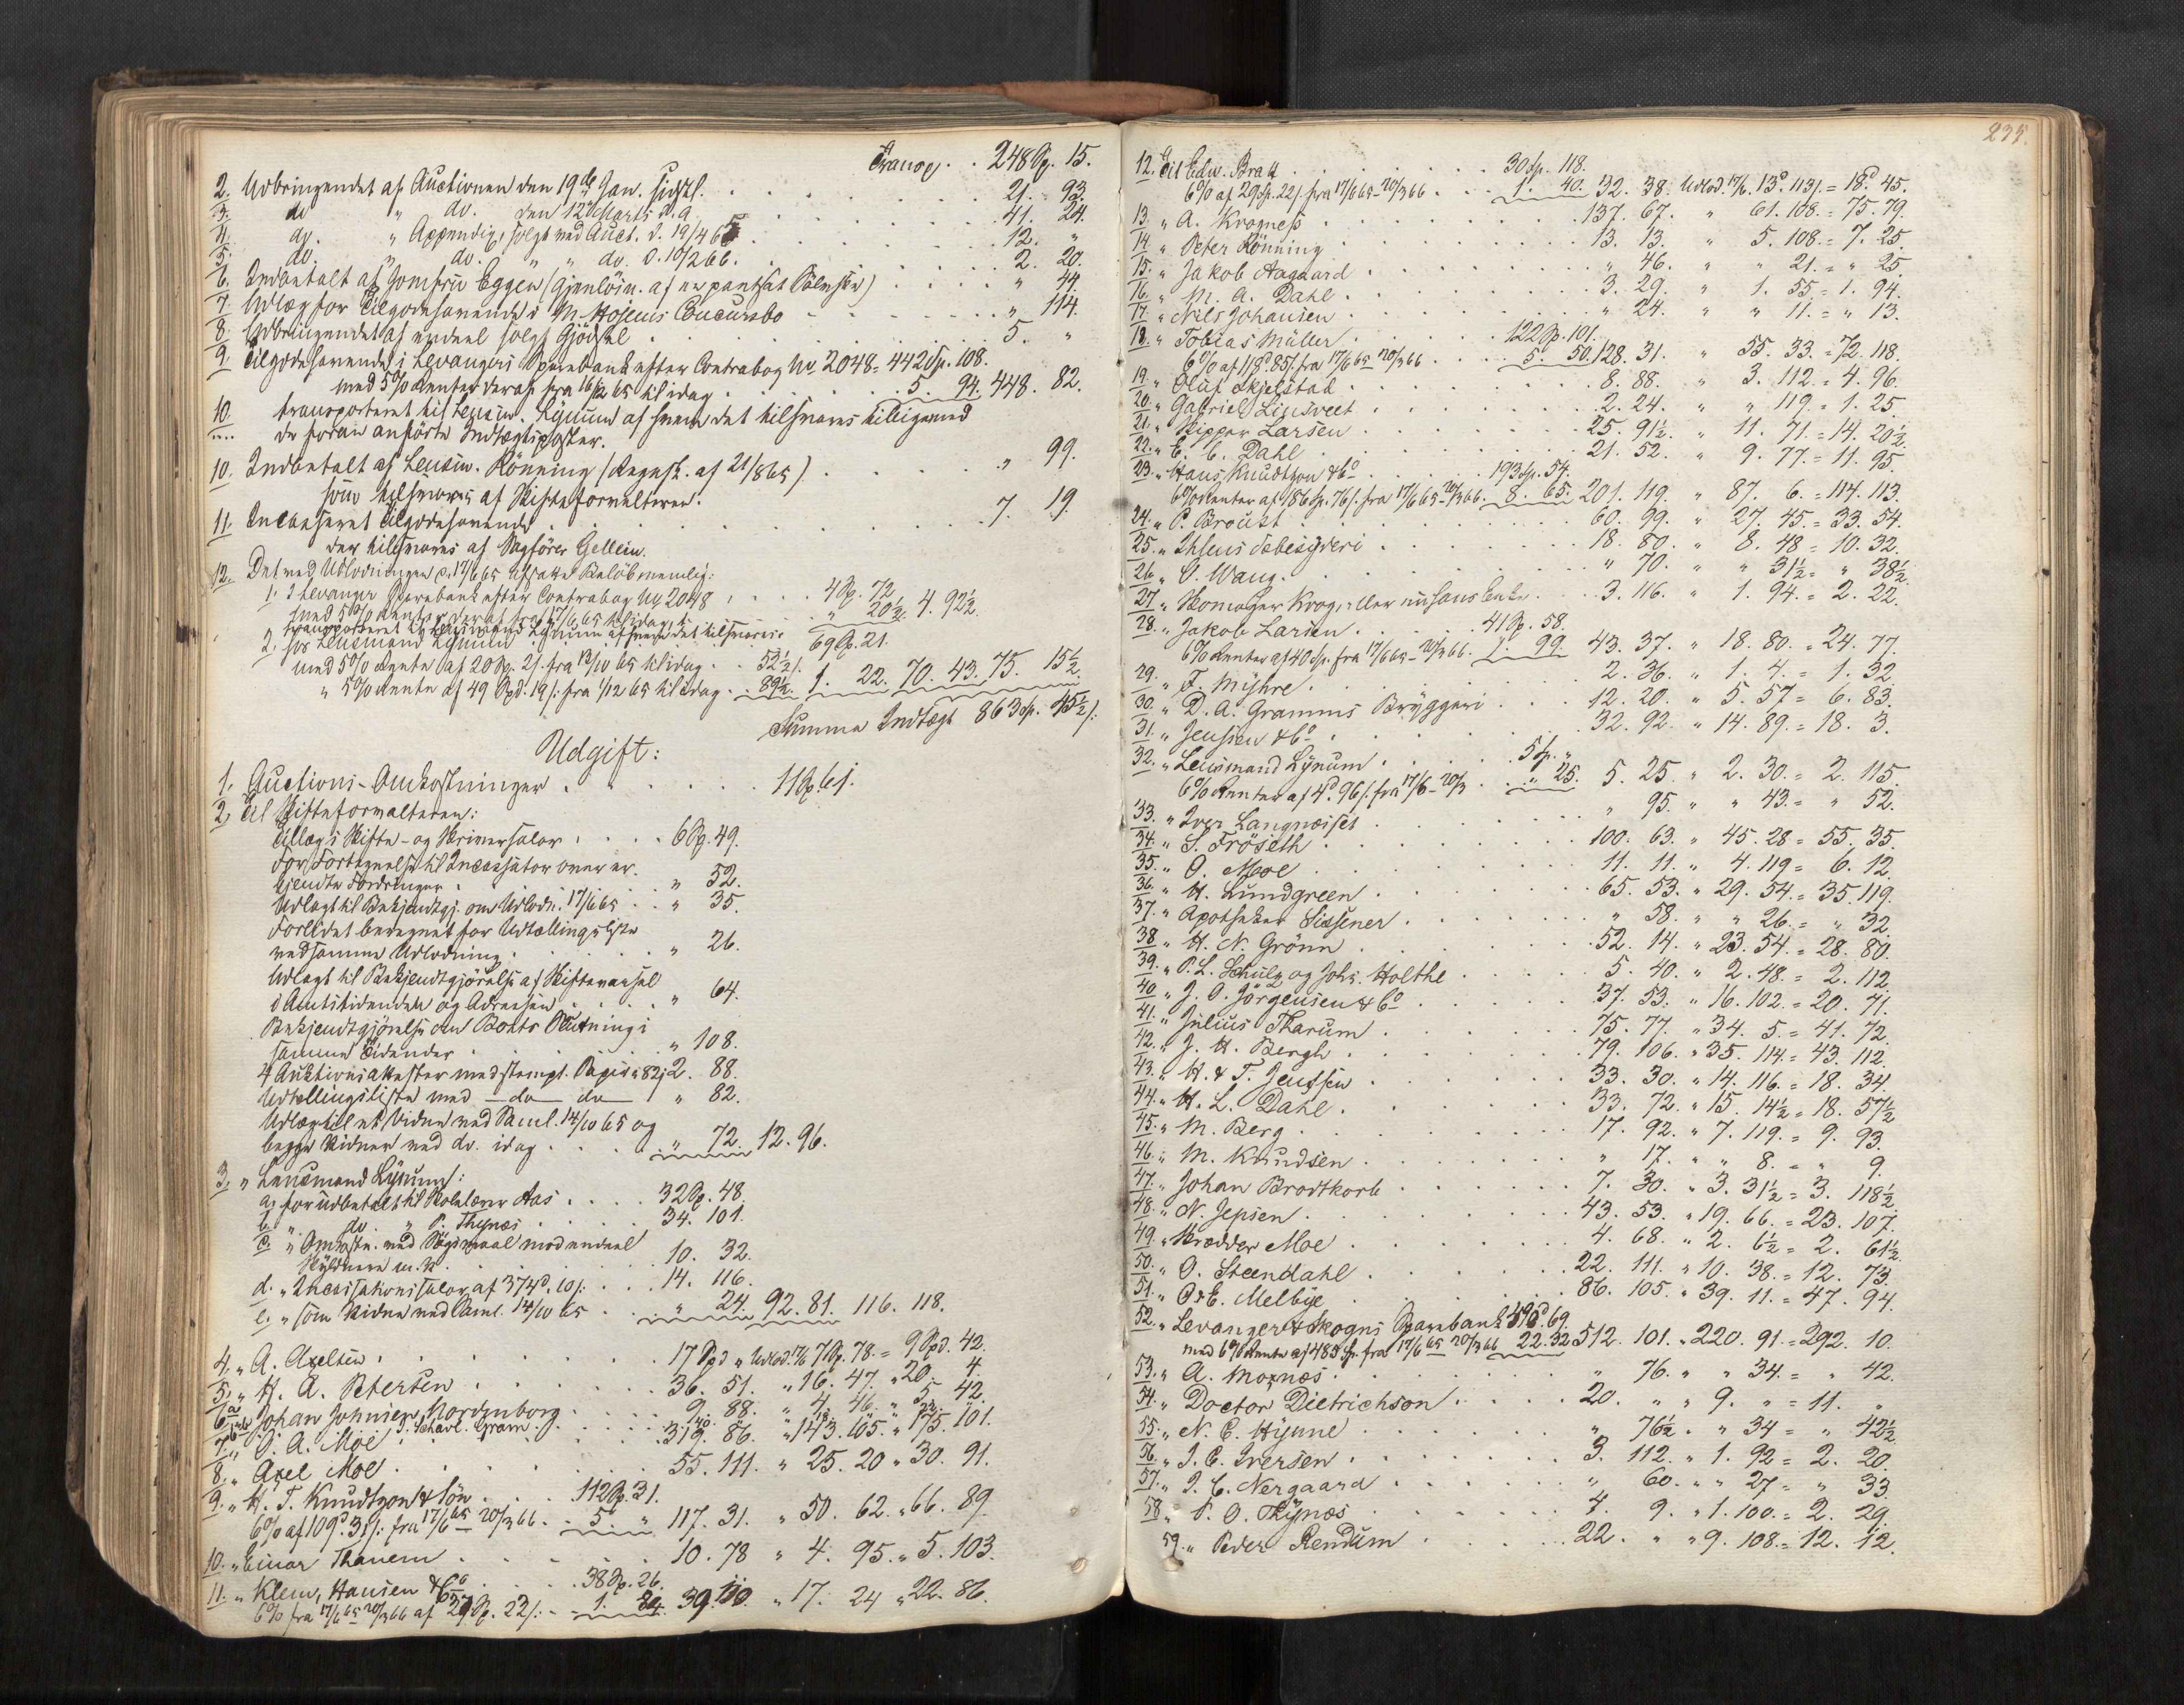 Transp. . 248 Sp. 15.
2. Udbringendet af Auctionen den 19de Jan. sidstl. . . 21. 93.
3. do " do. den 12te Marts d. a. . . 41. 24.
4. do. " Appendix, solgt ved Auct. d. 19/4 65 . . 12. "
5. do. " do. " " do. d. 10/2 66. . . 2. 20.
6. Indbetalt af Jomfru Eggen (Gjenløsn. af en pantsat Sølvskee) . . " 44.
7. Udlæg for Tilgodehavende i M. Hojems Concursbo . . " 114.
8. Udbringendet af endeel solgt Gjødsel . . 5. "
9. Tilgodehavende i Levangers Sparebank efter Contrabog No 2048 = 442 Sp. 108.
med 5% Renter deraf fra 16/12 65 til idag . . 5. 94. 448. 82.
transporteret til Lensm. Lynum af hvem det tilsvares tilligemed
de foran anførte Indtægtsposter.
10. Indbetalt af Lensm. Rönning (Regnsk. af 21/8 65) . . " 99.
som tilsvares af Skifteforvalteren.
11. Incasseret Tilgodehavende . . 7. 19.
der tilsvares af Sagfører Gellein.
12. Det ved Udlodningen d. 17/6 65 afsatte Beløb nemlig:
1. I Levanger Sparebank efter Contrabog No 2048 . . 4 Sp. 72
med 5% Renter deraf fra 17/6 65 til idag . . " 20½. 4. 92½.
transporteret til Lensmand Lynum af hvem det tilsvares.
2. hos Lensmand Lynum . . 69 Sp. 21.
med 5% Rente af 20 Sp. 2 s. fra 13/10 65 til idag . . 52½ s.
" 5% Rente af 49 Spd. 19 s. fra 1/12 65 til idag . . 89½. 1. 22. 70. 43. 75. 15½.
Summa Indtægt 863 Sp. 45½ s:
Udgift:
1. Auctions-Omkostninger . . 11 Sp. 61.
2. Til Skifteforvalteren:
Tillægs Skifte- og Skriversalær . . 6 Sp. 49.
For Fortegnelse til Incassator over er-
kjendte Fordringer . . " 52.
Udlagt til Bekjendtgj. om Udlodn. 17/6 65 . . " 35.
Forlidet beregnet for Udtællingsliste
ved samme Udlodning . . " 26.
Udlagt til Bekjendtgjørelse af Skiftevarsel
i Amtstidenden og Adressen . . " 64.
Bekjendtgjørelse om Boets Slutning i
samme Tidender . . " 108.
4 Auktionsattester med stempl. Papir a 82 s 2. 88.
Udtellingsliste med — do — do — " 82.
Udlæg til et Vidne ved Saml. 14/10 65 og
begge Vidner ved do. idag . . " 72. 12. 96.
3. " Lensmand Lynum:
a, forudbetalt til Skolelærer Aas . . 32 Sp. 48.
b. " do. " P. Thynæs . . 34. 101.
c. " Omkostn. ved Søgsmaal mod endeel
Skyldnere m. v. . . 10. 32.
d. " Incassationssalær af 374 d. 10 s. . . 14. 116.
e. " som Vidne ved Saml. 14/10 65 . . " 24. 92. 81. 116. 118.
4. " A. Axelsen . . 17 Spd " Udlod. 17/6 7 Sp. 78. = 9 Spd. 42.
5. " H. A. Petersen . . 36. 51. " 16. 47. " 20. 4.
6a " Johan Johnsen Nordenborg . . 9. 88. " 4. 46. " 5. 42.
J. Scharl. Gram
7. " O. A. Moe . . 319. 86. " 143. 105. " 175. 101.
8. " Axel Moe . . 55. 111. " 25. 20 " 30. 91.
9. " H. T. Knudtzon & Søn . . 112 Sp. 31.
6% af 109 d. 31 s: fra 17/6 65 – 20/3 66. . . 5. " 117. 31. " 50. 62. " 66. 89.
10. " Einar Thanem . . 10. 78 " 4. 95. " 5. 103.
11. " Klem, Hansen & Co . . 38 Sp. 26.
6% fra 17/6 65 – 20/3 66 af 29 Sp. 22 s: . . 1. 84. 39. 110. " 17. 24 " 22. 86.
235.
12. Til Edw. Bratt . . 30 Sp. 118.
6% af 29 Sp. 22 s. fra 17/6 65 – 20/3 66 . . 1. 40. 32. 38. Udlod. 17/6. 13 d. 113 s. = 18 d. 45.
13. " A. Krogness . . 137. 67. " 61. 108. = 75. 79.
14. " Peter Rönning . . 13. 13. " 5. 108. = 7. 25.
15. " Jakob Aagaard . . " 46. " " 21. = " 25.
16. " M. A. Dahl . . 3. 29. " 1. 55 = 1. 94.
17. " Nils Johansen . . " 24. " " 11. = " 13.
18. " Tobias Müller . . 122 Sp. 101.
6% af 118 d. 85 s. fra 17/6 65 – 20/3 66 . . 5. 50. 128. 31. " 55. 33. = 72. 118.
19. " Oluf Skjelstad . . 8. 88. " 3. 112. = 4. 96.
20. " Gabriel Linsveet . . 2. 24. " " 119. = 1. 25.
21. " Skipper Larsen . . 25. 91½. " 11. 71. = 14. 20½.
22. " E. C. Dahl . . 21. 52. " 9. 77. = 11. 95.
23. " Hans Knudtzon & Co . . 193 Sp. 54.
6% Renter af 186 Sp. 76 s. fra 17/6 65 – 20/3 66. 8. 65. 201. 119. " 87. 6. = 114. 113.
24. " P. Broust . . 60. 99. " 27. 45. = 33. 54.
25. " Ihlens Jøbesyderi . . 18. 80. " 8. 48 = 10. 32.
26. " O. Wang . . " 70. " " 31½ = " 38½.
27. " Skomager Krog, eller nu hans Enke . . 3. 116. " 1. 94. = 2. 22.
28. " Jakob Larsen . . 41 Sp. 58.
6% Renter af 40 Sp. fra 17/6 65 – 20/3 66. 1. 99. 43. 37. " 18. 80. = 24. 77.
29. " F. Myhre . . 2. 36. " 1. 4. = 1. 32.
30. " D. A. Gramms Bryggeri . . 12. 20. " 5. 57 = 6. 83.
31. " Jenssen & Co . . 32. 92. " 14. 89. = 18. 3.
32. " Lensmand Lynum . . 5 Sp. "
6% Renter af 4 d. 96 s. fra 17/6 – 20/3 . . " 25. 5. 25. " 2. 30. = 2. 115.
33. " Iver Langnæiset . . " 95. " " 43. = " 52.
34. " S. Fröseth . . 100. 63. " 45. 28 = 55. 35.
35. " O. Moe . . 11. 11. " 4. 119 = 6. 12.
36. " H. Lundgreen . . 65. 53. " 29. 54. = 35. 119.
37. " Apotheker Sissener . . " 58. " " 26. = " 32.
38. " H. N. Grönn . . 52. 14. " 23. 54. = 28. 80.
39. " P. L. Schulz og Johs. Holthe . . 5. 40. " 2. 48. = 2. 112.
40. " J. O. Jörgensen & Co . . 37. 53. " 16. 102. = 20. 71.
41. " Julius Tharum . . 75. 77. " 34. 5. = 41. 72.
42. " J. H. Bergh . . 79. 106. " 35. 114. = 43. 112.
43. " H. & T. Jenssen . . 33. 30. " 14. 116. = 18. 34.
44. " H. L. Dahl . . 33. 72. " 15. 14½ = 18. 57½
45. " M. Berg . . 17. 92. " 7. 119. = 9. 93.
46. " M. Knudsen . . " 17. " " 8. = " 9.
47. " Johan Brodtkorb . . 7. 30. " 3. 31½ = 3. 118½
48. " N. Jepsen . . 43. 53. " 19. 66. = 23. 107.
49. " Skrædder Moe . . 4. 68. " 2. 6½ = 2. 61½
50. " O. Steendahl . . 22. 111. " 10. 38. = 12. 73.
51. " O & E. Melbye . . 86. 105. " 39. 11. = 47. 94.
52. " Levanger & Skogns Sparebank 490 d. 69.
med 6% Rente af 485 Sp. fra 17/6 65 – 20/3 66 22. 32 512. 101. " 220. 91. = 292. 10.
53. " A. Moxnæs . . " 76. " " 34. = " 42.
54. " Doctor Dietrichson . . 20. " " 9. " = 11. "
55. " N. C. Hynne . . " 76½. " " 34 = " 42½
56. " I. C. Iversen . . 3. 112. " 1. 92 = 2. 20.
57. " I. C. Nergaard . . " 60. " " 27 = " 33
58. " P. O. Thynæs . . 4. 9. " 1. 100. = 2. 29.
59. " Peder Rendum . . 22. " " 9. 108. = 12. 12.